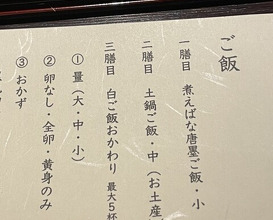 ご飯
一膳目 煮えばな唐墨ご飯・小
二膳目 土鍋ご飯・中（お土産
三膳目 白ご飯おかわり 最大5杯
①量（大・中・小）
②卵なし・全卵・黄身のみ
③おかず